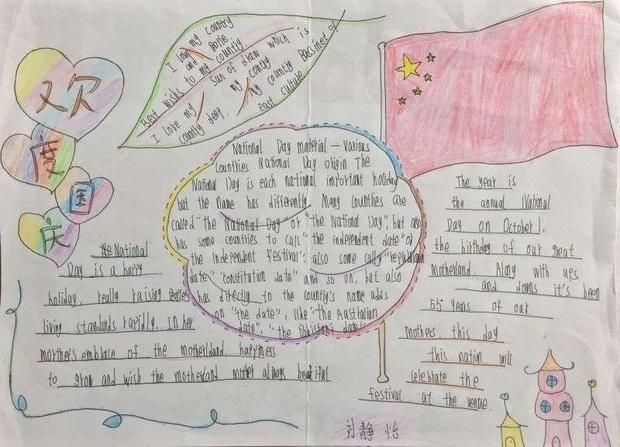 欢
度
国
庆
I love my country
and
to my country
Best wishes
sun of draw which is
I love my
my country
country deep.
my country
east culture
National Day material - Various
Countries National Day origin The
National Day is each national important holiday
but the name has differently. Many countries are
called "the National Day" or "the National Day", but also
has some countries to call "the independent date" or
the independent Festival": also some call "republican
date" "constitution date" and so on, but also
has directly to the country's name adds
on "the date", like "the Australian
date", "the Pakistani date"
The year is
the annual National
Day on October 1.
the birthday of our great
motherland. Along with ups
and downs it's been
55 years of our
mothers this day
this nation will
celebrate the
festival at the venue.
National
Day is a happy
holiday, really raising
living standards rapidly. In her
mother's embrace of the motherland happiness
to grow and wish the motherland mother always beautiful
刘静怡